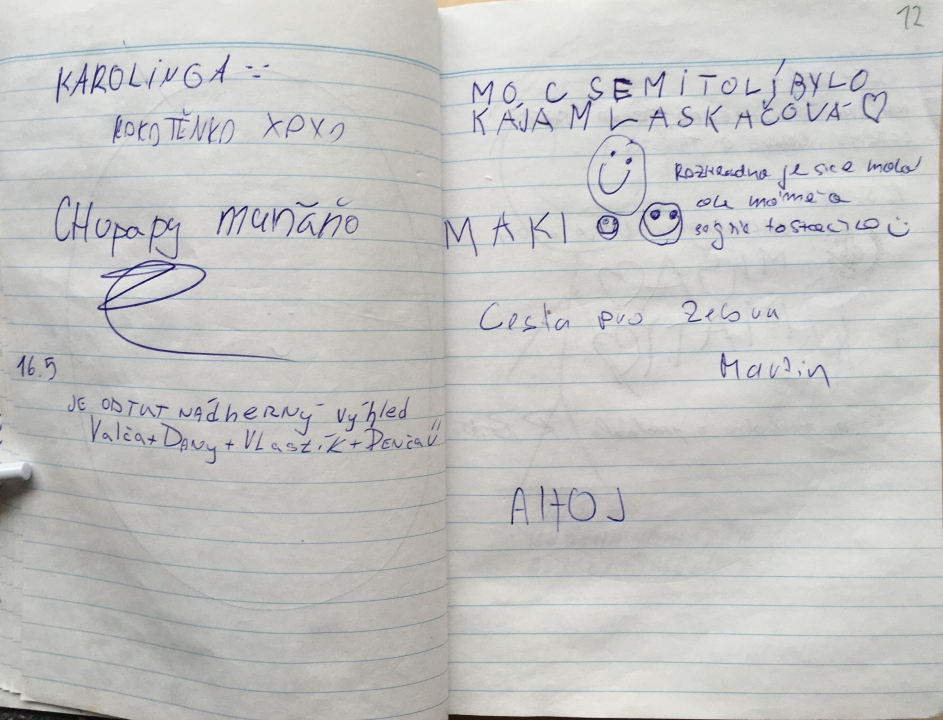 KAROLiNGA
KOKOTĚNKO XDXD
CHupapy muňaňo
16.5
JE ODTUT NÁDhERNÝ VÝhled
Valča+DANy+VLasťiK+DENČA
12
MOC SE MI TO LÍBYLO
KÁJA MLASKAČOVÁ ♡
ROZHLEDNA je sice malá
ale máme
MAKI
Cesta pro želvu
Martin
AHOJ